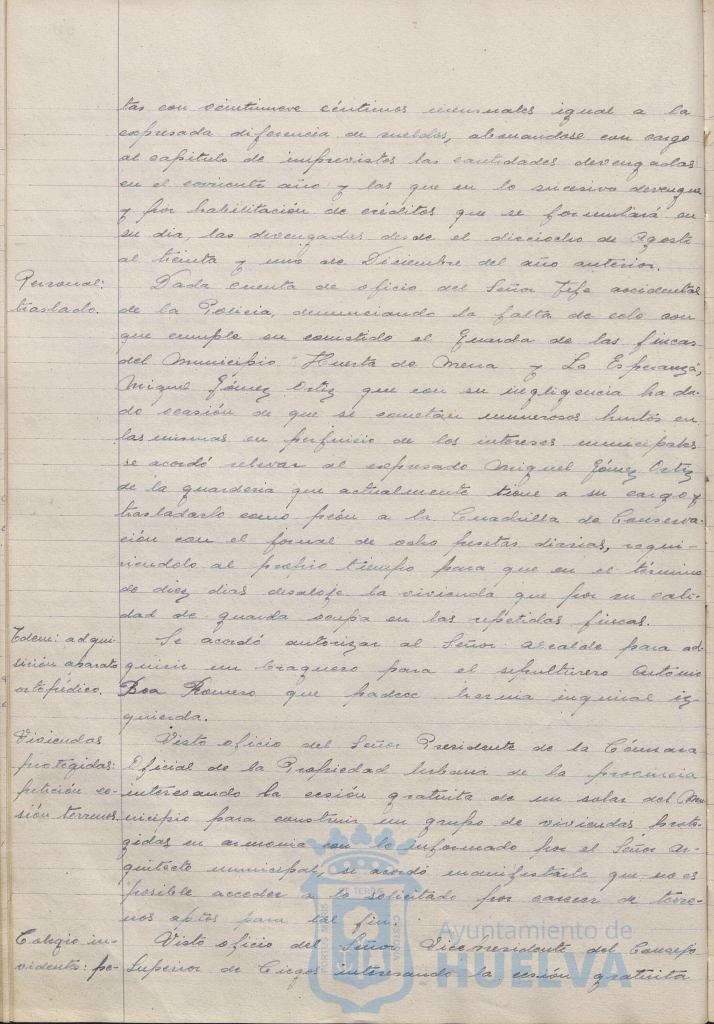 tas con veintinueve céntimos mensuales igual a la
expresada diferencia de sueldos, abonandose con cargo
al capitulo de imprevistos las cantidades devengadas
en el corriente año y las que en lo sucesivo devengue
y por habilitación de créditos que se formulará en
su dia, las devengadas desde el dieciocho de Agosto
al treinta y uno de Diciembre del año anterior.
Personal:
traslado.
Dada cuenta de oficio del Señor Jefe accidental
de la Policia, denunciando la falta de celo con
que cumple su cometido el Guarda de las fincas
del Municipio Huerta de Mena y La Esperanza,
Miguel Gómez Ortiz que con su ingligencia ha da-
do ocasión de que se cometan numerosos hurtos en
las mismas en perjuicio de los intereses municipales
se acordó relevar al expresado Miguel Gómez Ortiz
de la guarderia que actualmente tiene a su cargo y
trasladarlo como peón a la Cuadrilla de Conserva-
ción con el jornal de ocho pesetas diarias, requi-
riendolo al propio tiempo para que en el término
de diez dias desaloje la vivienda que por su cali-
dad de guarda ocupa en las repetidas fincas.
Idem: adqui-
sición aparato
ortopédico.
Se acordó autorizar al Señor Alcalde para ad-
quirir un braguero para el sepulturero Antonio
Boa Romero que padece hernia inguinal iz-
quierda.
Viviendas
protegidas:
petición ce-
sión terrenos.
Visto oficio del Señor Presidente de la Cámara
Oficial de la Propiedad Urbana de la provincia
interesando la cesión gratuita de un solar del Mu-
nicipio para construir un grupo de viviendas prote-
gidas en armonia con lo informado por el Señor Ar-
quitecto municipal, se acordó manifestarle que no es
posible acceder a lo solicitado por carecer de terre-
nos aptos para tal fin.
Colegio in-
vidente: pe-
Visto oficio del Señor Vicepresidente del Consejo
Superior de Ciegos interesando la cesión gratuita
PORTUS MARIS
ET TERRE
CUSTODIA
Ayuntamiento de
HUELVA